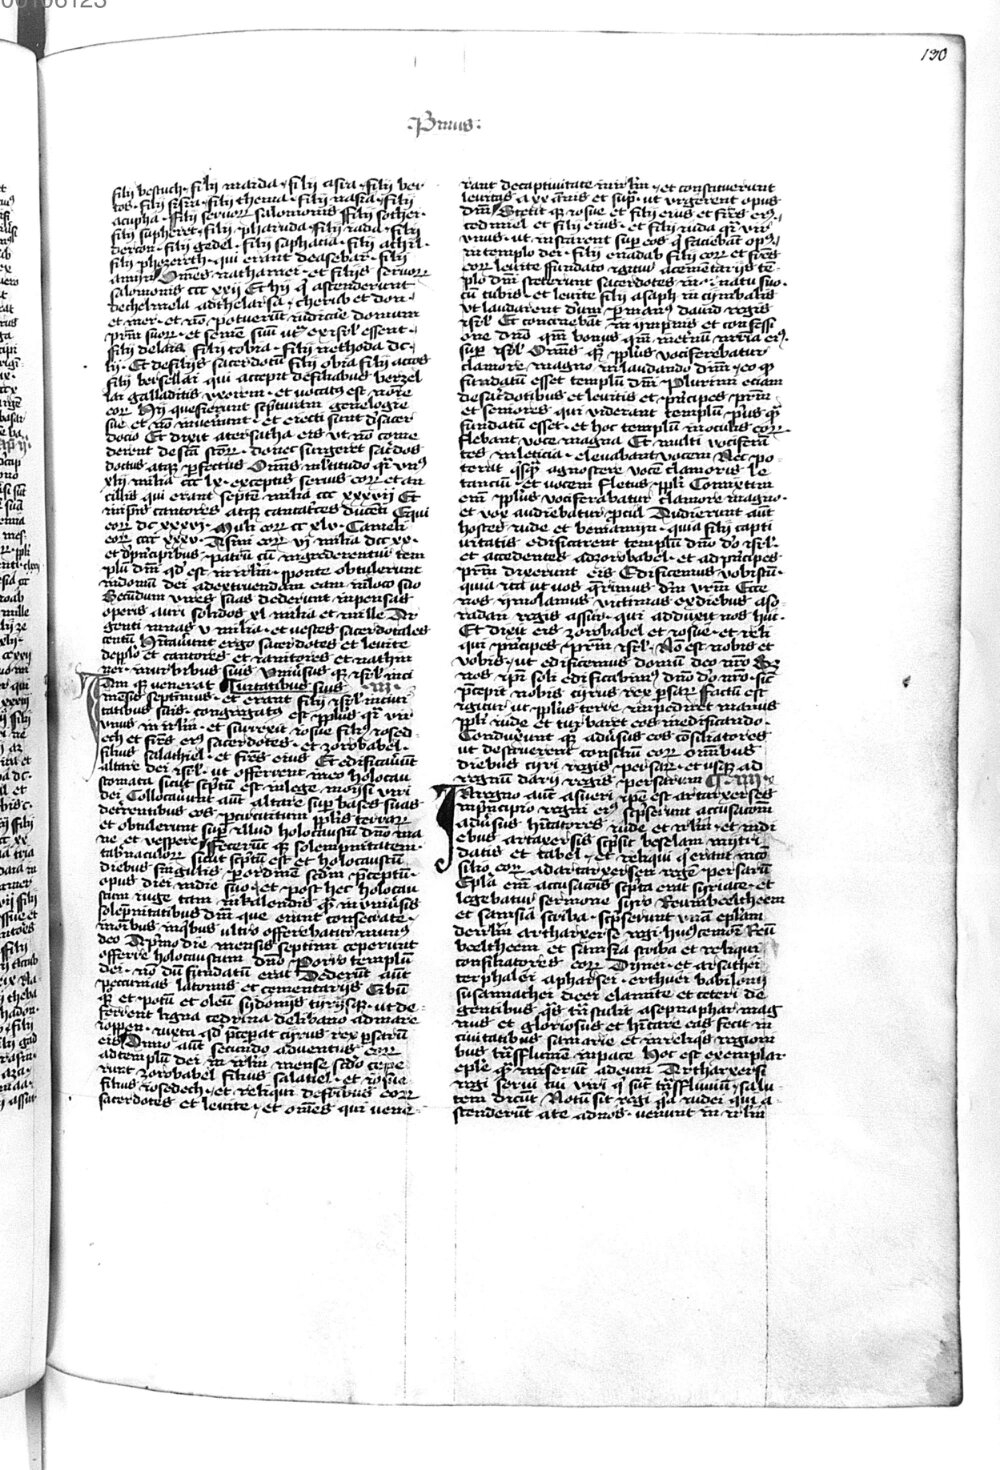 130
·Primus:
filij besiuch· filij marda· filij asra· filij ber
cos· filij sisra· filij thema· filij nasia· filij
acupha· filij seruoꝝ salomonis filij sother·
filij supheret· filij pharuda· filij iada· filij
dercon· filij gedel· filij saphatia· filij athil·
filij phozereth· qui erant deasebar· filij
amim Om̄es nathamei· et filijs seruoꝝ
salomonis ccc xxij Et hij q̄ ascenderunt
thechelmola adthelarsa· cherub et don·
et mer· et nō potuerūt iudicare domum
pr̄m suoꝝ· et semē suū utꝝ exisrl̄ essent·
filij delaia filij tobia· filij nethoda dc·
lij· Et defilijs sacerdotū filij obia filij accos
filij bersellai qui accepit defiliabus berzel
lai galaditis vxorem· et vocatꝰ est noīe
eoꝝ Hij quesierunt scpturam genelogie
sue et nō inuenerūt· et eiecti sunt d'sacer
docio Et dixit atersatha eis vt nō come
derent de scō scoꝝ· donec surgeret sacdos
doctus atqꝫ perfectus Om̄is mltitudo qͣsi vnꝰ
xlij milia ccc lx· exceptis seruis eoꝝ et an
cillis qui erant septē milia ccc xxxvij Et
inipsis cantores atqꝫ cantatͥces ducēti Equi
eoꝝ dc xxxvj· Muli eoꝝ cc xlv· Cameli
eoꝝ ccc xxxv· Asini eoꝝ vj milia dcc xx·
et d'pͥncipibus patrū cū ingrederentur tem
plū dn̄i qd̄ est in irlm̄· sponte obtulerunt
indomū dei adextruendam eam inloco suo
Secūdum vires suas dederunt inpensas
operis auri solidos xl milia et mille Ar
genti mnas v milia· et vestes sacerdotales
centū Hītauerunt ergo sacerdotes et leuite
depplo et cantores et ianitores et nathin
nei· inurbibus suis vniu'susqꝫ isrl̄ inci
uitatibus suis· ·iij·
Iam qꝫ venerat
mensis septimus· et erant filij isrl̄ inciui
tatibus suis· congregatꝰ est ppl̄us qͣsi vir
vnus in irlm̄· et surrexit iosue filiꝰ iosed
ech et fr̄es eiꝰ sacerdotes· et zorobabel·
filius salathiel· et fr̄es eius Et edificauerūt
altare dei isrl̄· ut offerrent ineo holocau
stomata sicut scptū est inlege moysi viri
dei Collocauerūt aūt altare sup bases suas
deterrentibus eos p circuitum pplīs terraꝝ
et obtulerunt sup illud holocaustū dn̄o ma
ne et vespere· fecerūt qꝫ solempnitatem·
tab'naculoꝝ sicut scptū est et holocaustū
diebus singulis p ordinē scdm p̄ceptū·
opus diei indie suo· et post hec holocau
stum iuge tam inkalendis q̄ȝ inuniu'sis
solempnitatibus dn̄i que erant consecrate·
inoībus inqͥbus ultro offerebatur munus
deo Aprͥmo die mensis septimi ceperunt
offerre holocaustum dn̄o Porro templū
dei· nō dū fundatū erat Dederūt aūt
peccunias latomis et cementarijs Cibū
qꝫ et potū et oleū sydonijs tyrijsqꝫ· ut de·
ferrent ligna cedrina delibano admare
ioppen· iuxta qd̄ p̄ceperat cyrus rex persarū
eis Anno aūt secundo aduentus eoꝝ
adtemplū dei in irlm̄ mense scd̄o cepe
runt zorobabel filius salatiel· et iosue
filius iosedech· et reliqui defrībus eoꝝ
sacerdotes et leuite· et om̄es qui vene
rant decaptiuitate inirlm̄· et constituerunt
leuitas a xx annis et sup· ut urgerent opus
dn̄i Stetit qꝫ iosue et filij eius et fr̄es eiꝰ·
cedmiel et filij eius· et filij iuda qͣsi vir
vnus· ut instarent sup eos q̄ faciebāt opꝰ·
in templo dei· filij enadab filij eoꝝ et fr̄es
eoꝝ leuite fundato igitur acementarijs tē
plo dn̄i steterunt sacerdotes inornatu suo·
cū tubis· et leuite filij asaph in cymbalis
vt laudarent dn̄um p manꝰ dauid regis
isrl̄ Et concinebāt in ympnis et confessi
one dn̄o qm̄ bonus qm̄ inet'nū mīa eiꝰ·
sup isrl̄ Om̄is qꝫ ppl̄us vociferebatur
clamore magno inlaudando dn̄m· eo qꝫ
fundatū esset templū dn̄i Plurimi eciam
desac'dotibus et leuitis et pͥncipes pr̄m
et seniores qui viderant templū pͥus qͣ
fundatū esset· et hoc templū inoculis eoꝝ
flebant voce magna Et multi vociferā
tes inleticia· eleuabant vocem Nec po
terat qͥsqͣ agnoscere vocē clamoris le
tanciū· et vocem fletus ppl̄i Comixtim
enī ppl̄us vociferabatur clamore magno·
et vox audiebatur procul Audierunt aūt
hostes iude et beniamin· quia filij capti
uitatis edificarent templū dn̄o d'o isrl̄·
et accedentes adzorobabel· et adpͥncipes
pr̄m dixerunt eis Edificemus vobiscū·
quia ita ut uos querimus dm̄ vr̄m Ecce
nos ymolamus victimas exdiebus aso·
radan regis assur· qui adduxit nos huc·
Et dixit eis zorobabel et iosue· et reliqui
qui pͥncipes pr̄m isrl̄· Nō est nobis et
vobis· ut edificemus domū deo nr̄o Sꝫ
nos ipī soli edificabimꝰ dn̄o d'o nr̄o· sic̄
p̄cepit nobis cyrus rex psaꝝ Factū est
igitur ut ppl̄us terre inpediret manus
ppl̄i iude et turbaret eos inedificando·
Conduxerunt qꝫ adu'sus eos cōsiliatores
ut destruerent consiliū eoꝝ om̄ibus
diebus cyri regis persaꝝ· et usqꝫ ad
regnū darij regis persarum C·iiij·
In regno aūt asueri ipē est artarxerses
inpͥncipio regni eiꝰ scpserunt accusacōem
adu'sus hītatores iude et irlm̄· et indi
ebus artaxersis scpsit beselam mitri
datis et tabel· et reliqui q̄ erant incō
silio eoꝝ adartarxersen regē persarū
Epl̄a enī accusacōis scpta erat syriace· et
legebatur sermone syro Reumbeeltheem
et samsia scriba· scpserunt vnā eplam
deirlm̄ artharxerse regi huiꝰcemōi Reū
beeltheem et samsia scriba et reliqui
consiliatores eoꝝ Dynei· et arsathei
terphalei apharsei· erthuei babilonij
susannachei dieei elamite et ceteri de
gentibus qͣs tnstulit asennaphar mag
nus et gloriosus et hītare eas fecit in
ciuitatibus samarie et inreliqͥs regioni
bus trāsflumē inpace Hoc est exemplar
eple qͣȝ miserūt adeum Artharxersi
regi serui tui viri q̄ sūt trāsfluuiū· salu
tem dicūt Notū sit regi qͣa iudei qui a·
scenderūt ate adnos· venerunt in irlm̄